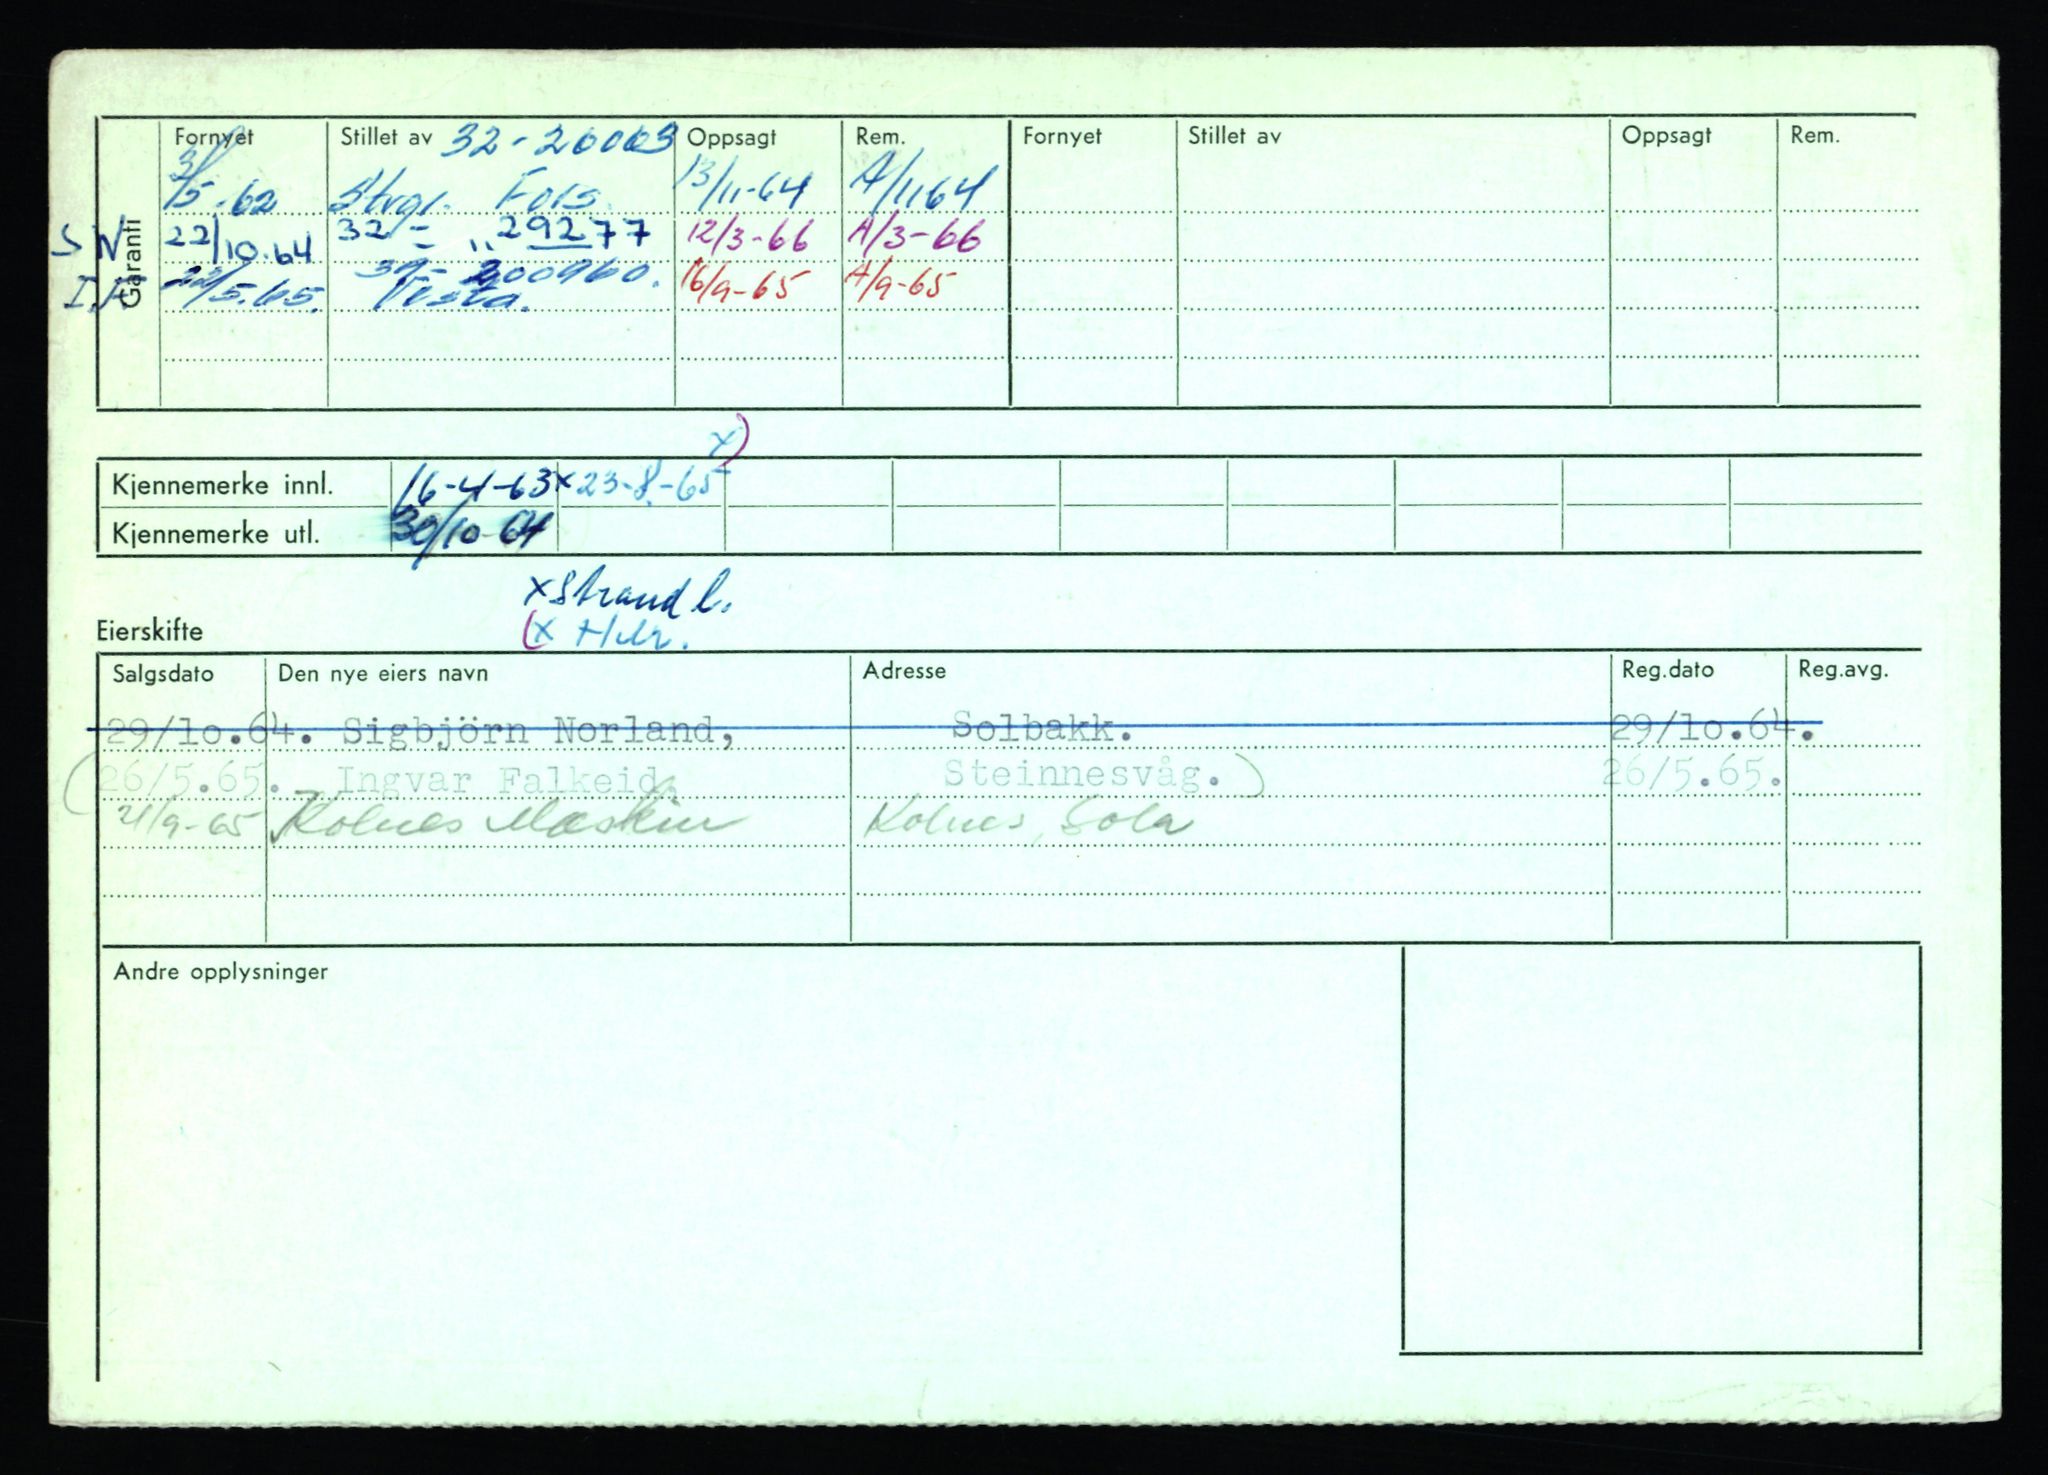 Garanti
Fornyet Stillet av 32-20003 Oppsagt Rem. Fornyet Stillet av Oppsagt Rem.
3/5-62 Strgr. Fots. 13/11-64 A/11 64
S N 22/10.64 32 - „ 29277 12/3-66 A/3-66
I.F. /5.65. 200960. Vesta. 16/9-65 A/9-65
x)
Kjennemerke innl. 16-4-63x 23-8-65
Kjennemerke utl. 30/10-64
x Strand l.
(x Hur.
Eierskifte
Salgsdato Den nye eiers navn Adresse Reg.dato Reg.avg.
29/lo.64. Sigbjörn Norland, Solbakk. 29/lo.64.
(26/5.65. Ingvar Falkeid, Steinnesvåg.) 26/5.65.
21/9-65 Kolnes Maskin Kolnes, Sola
Andre opplysninger